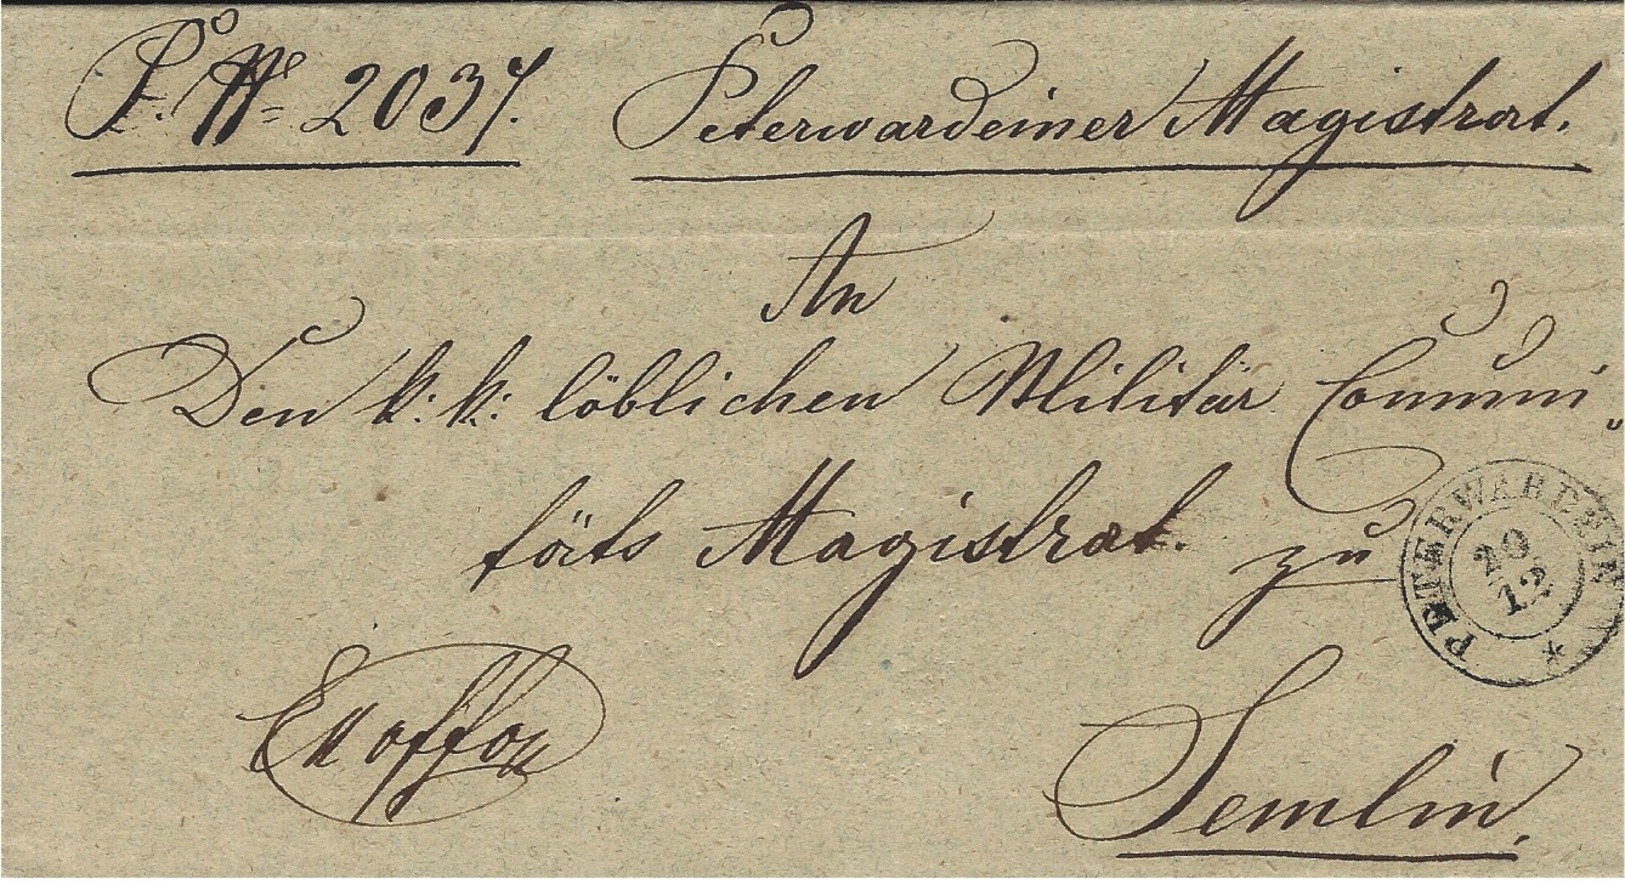 P. No 2037. Peterwardeiner Magistrat.
An
Den k: k: löblichen Militär Communi„
täts Magistrat. zu
PETERWARDEIN
20
12
Ex offo
Semlin.